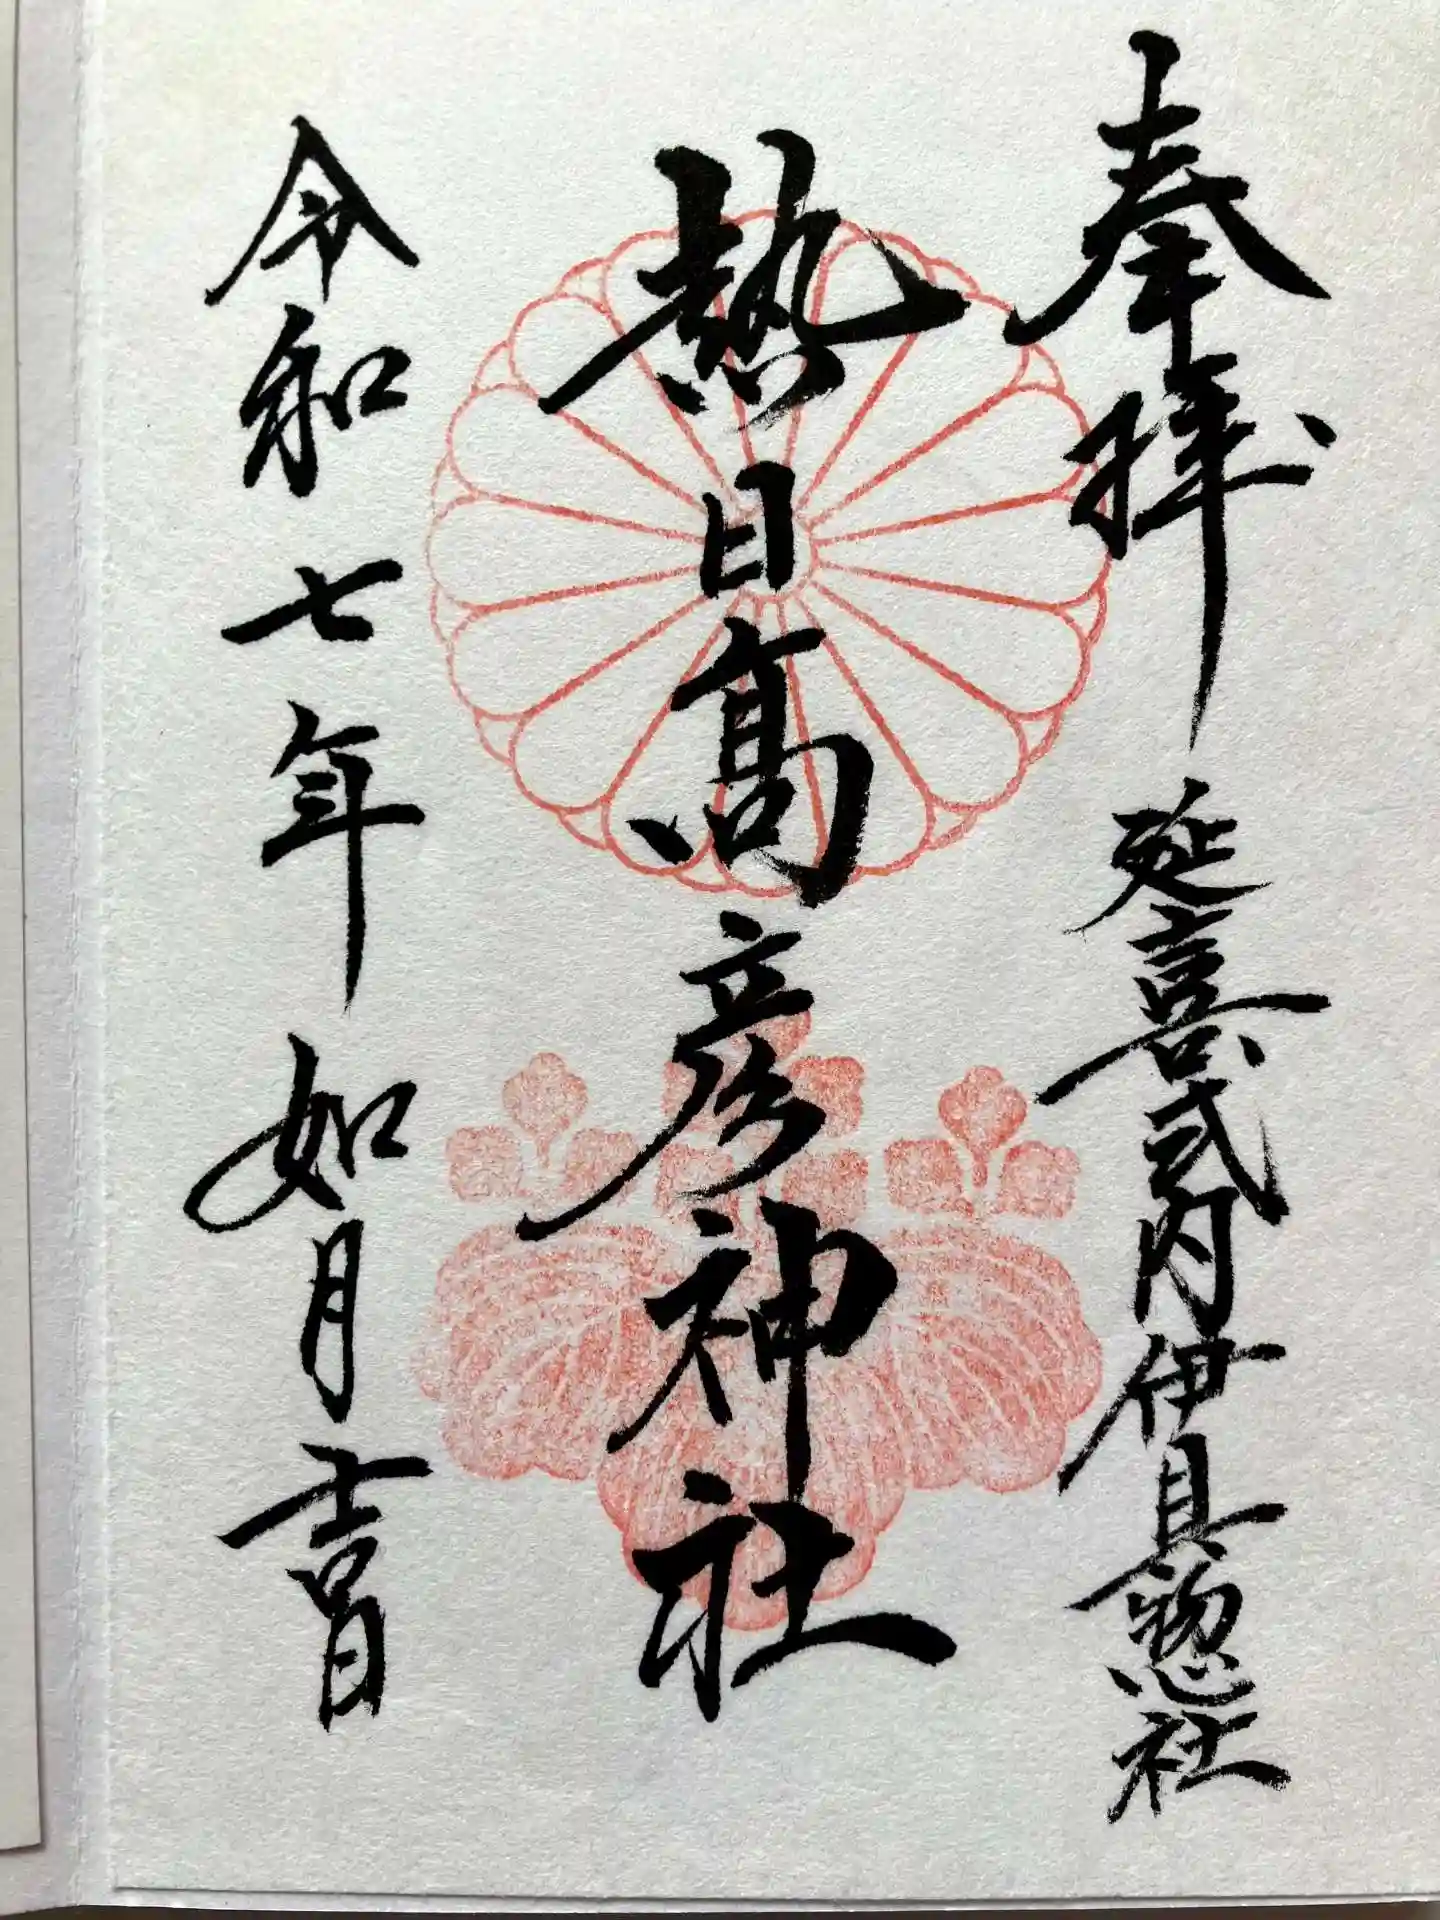 奉拝 延喜式内伊具惣社
熱日高彦神社
令和七年如月吉日